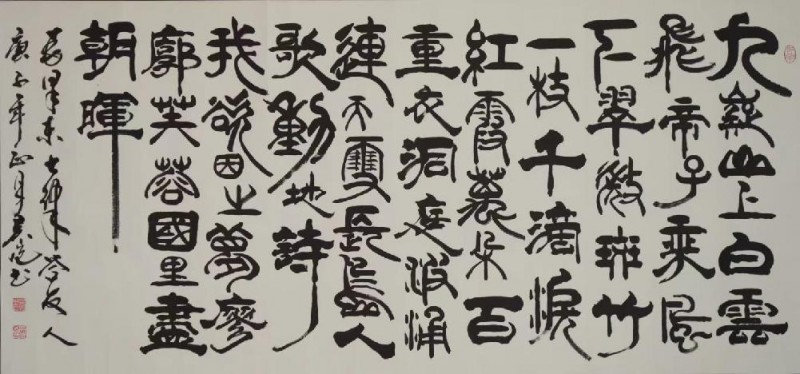 九嶷山上白雲
飛帝子乘風
下翠微斑竹
一枝千滴淚
紅霞萬朵百
重衣洞庭波涌
連天雪長島人
歌動地詩
我欲因之夢廖
廓芙蓉國里盡
朝暉
毛澤東七律答友人
庚子年正月書